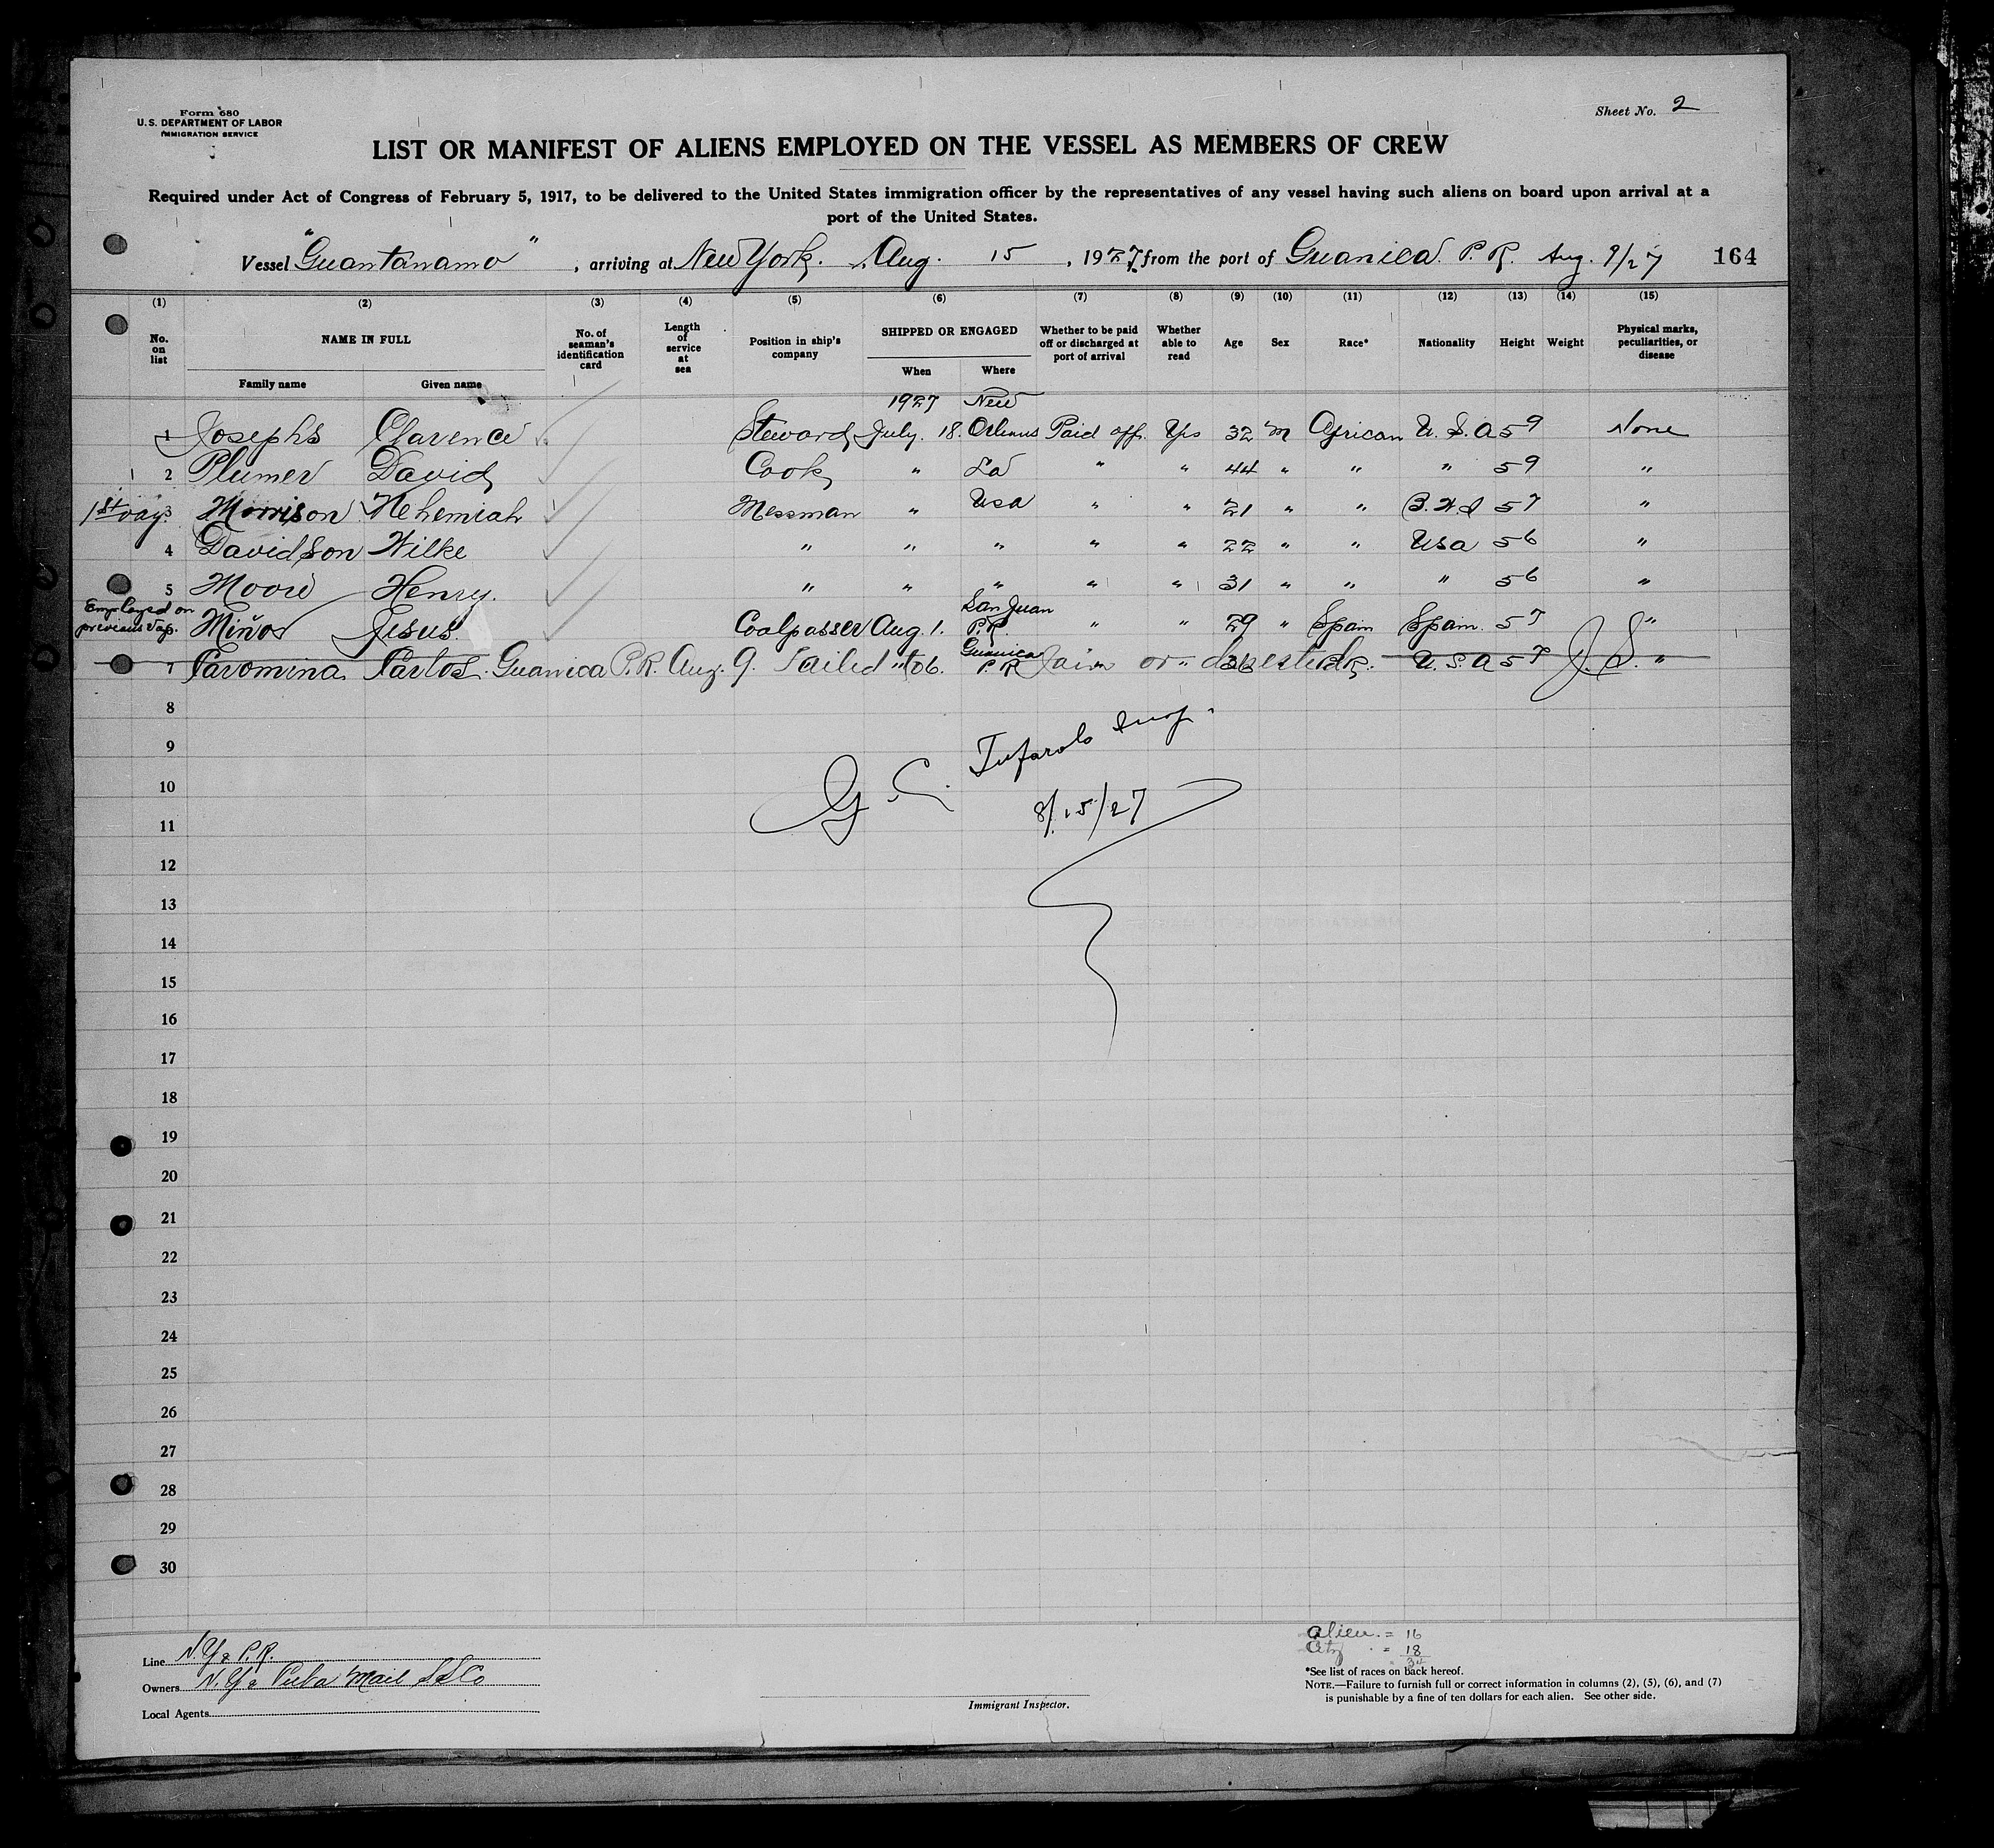 Form 680
U.S. DEPARTMENT OF LABOR
IMMIGRATION SERVICE
Sheet No. 2
LIST OR MANIFEST OF ALIENS EMPLOYED ON THE VESSEL AS MEMBERS OF CREW
Required under Act of Congress of February 5, 1917, to be delivered to the United States immigration officer by the representatives of any vessel having such aliens on board upon arrival at a
port of the United States.
Vessel "Guantanamo", arriving at New York. Aug. 15, 1927 from the port of Guanica P. R. Aug. 9/27 164
(1) (2) (3) (4) (5) (6) (7) (8) (9) (10) (11) (12) (13) (14) (15)
No. on list NAME IN FULL Family name Given name No. of seaman's identification card Length of service at sea Position in ship's company SHIPPED OR ENGAGED When Where Whether to be paid off or discharged at port of arrival Whether able to read Age Sex Race* Nationality Height Weight Physical marks, peculiarities, or disease
1927 New
1 Josephs Clarence Steward July. 18. Orleans Paid off. Yes 32 M African U. S. A 5 9 None
2 Plumer David Cook " La " " 44 " " " 5 9 "
1st voy. 3 Morrison Nehemiah Messman " Usa " " 21 " " B. W. I 5 7 "
4 Davidson Wilke " " " " " 22 " " Usa 5 6 "
5 Moore Henry. " " " " " 31 " " " 5 6 "
Employed on previous voy. Miños Jesus. Coalpasser Aug. 1. San Juan P.R. " " 29 " Spain Spain. 5 7 "
7 Carlos. Guanica P.R. Aug. 9. Failed to Guanica P.R. U. S. A 5 7 J. S. "
8
9
10
11
G. C. Tufarolo Insp.
8/15/27
12
13
14
15
16
17
18
19
20
21
22
23
24
25
26
27
28
29
30
Line N. Y & P. R.
Owners N. Y & Cuba Mail SS Co
Local Agents
Immigrant Inspector.
alien = 16
Ctz = 18
34
*See list of races on back hereof.
NOTE.—Failure to furnish full or correct information in columns (2), (5), (6), and (7)
is punishable by a fine of ten dollars for each alien. See other side.